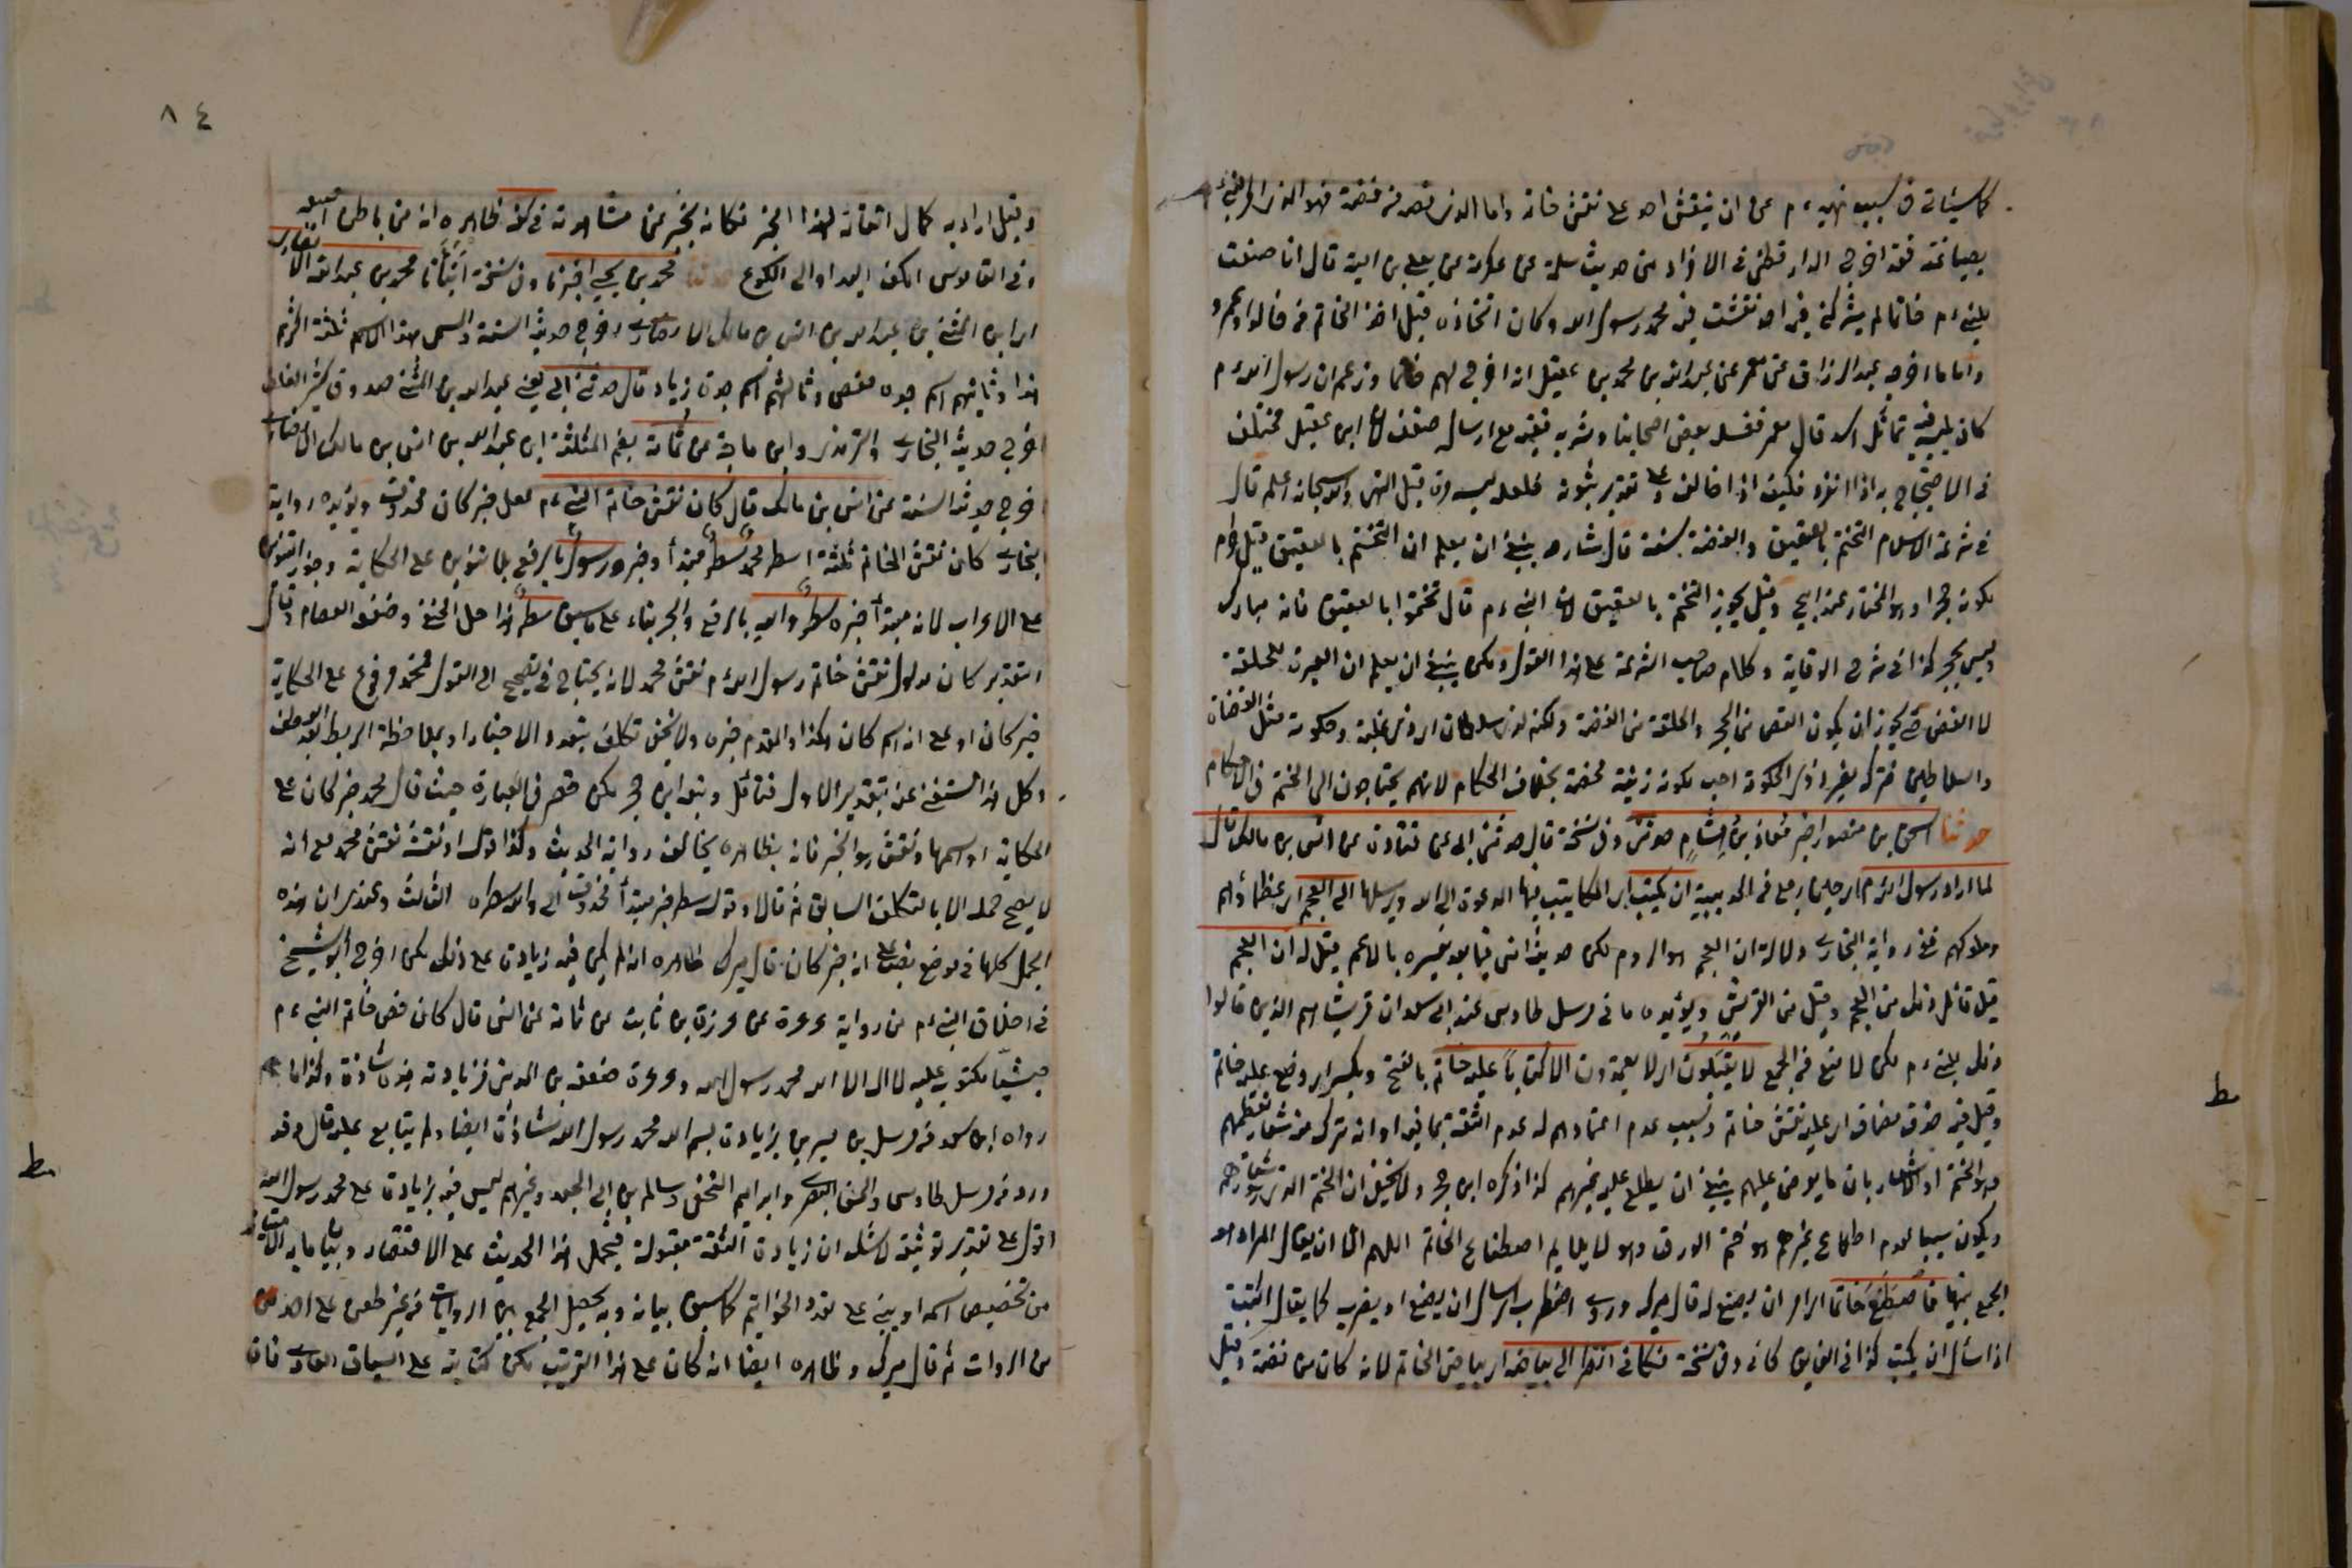 كما سيأتي في سبب نهيه ءم عن ان ينقش احد على نقش خاتمه واما الذي فصه من فضة فهو الذي امر النبي ءم
بصياغته فقد اخرج الدارقطني في الافراد من حديث سلمة عن عكرمة عن يعلى بن امية قال انا صنعت
للنبي ءم خاتما لم يشركني فيه احد نقشت فيه محمد رسول الله وكان اتخاذه قبل اخذ الخاتم من خالد او عمرو
واما ما اخرجه عبد الرزاق عن معمر عن عبد الله بن محمد بن عقيل انه اخرج لهم خاتما وزعم ان رسول الله ءم
كان يلبسه فيه تمثال اسد قال معمر فغسله بعض اصحابنا وشربه ففيه مع ارساله ضعف لان ابن عقيل مختلف
في الاحتجاج به اذا انفرد فكيف اذا خالف وعلى تقدير ثبوته فلعله لبسه مرة قبل النهي والله سبحانه اعلم قال
في شرعة الاسلام التختم بالعقيق والفضة سنة قال شارحه ينبغي ان يعلم ان التختم بالعقيق قيل حرام
لكونه حجرا وهو المختار عند ابي وقيل يجوز التختم بالعقيق لان النبي ءم قال تختموا بالعقيق فانه مبارك
وليس بحجر كذا في شرح الوقاية وكلام صاحب الشرعة على هذا القول ولكن ينبغي ان يعلم ان العبرة للحلقة
لا الفص فيجوز ان يكون الفص من الحجر والحلقة من الفضة ولكنه لذي سلطان اي ذي غلبة وحكومة مثل القضاة
والسلاطين فتركه لغير اذي الحكومة احب لكونه زينة محضة بخلاف الحكام لانهم يحتاجون الى الختم في الاحكام
حدثنا اسحق بن منصور اخبر معاذ بن هشام حدثني وفي نسخة قال حدثني ابي عن قتادة عن انس بن مالك قال
لما اراد رسول الله ءم اي حين رجع من الحديبية ان يكتب اي المكاتيب فيها الدعوة الى الله ويرسلها الى العجم اي عظمائهم
وملوكهم ففي رواية البخاري دلالة ان العجم هو الروم لكن حديث انس فيما بعد تفسيره بالاعم قيل له ان العجم
قيل قائل ذلك من العجم وقيل من القريش ويؤيده ما في مرسل طاوس عند ابن سعد ان قريشا هم الذين قالوا
ذلك للنبي ءم لكن لا منع في الجمع لا يقبلون اي لا يعتمدون الا كتابا عليه خاتم بالفتح ويكسر اي وضع عليه خاتم
وقيل فيه حذف مضاف اي عليه نقش خاتم وسبب عدم اعتمادهم له عدم الثقة بما فيه او انه ترك من شعار تعظيمهم
وهو الختم او الاشعار بان ما يعرض عليهم ينبغي ان لا يطلع عليه غيرهم كذا ذكره ابن حجر ولا يخفى ان الختم الذي
ويكون سببا لعدم اطلاع غيرهم هو ختم الورق وهو لا يلايم اصطناع الخاتم اللهم الا ان يقال المراد هو
الجمع بينهما فاصطنع خاتما اي امر ان يصنع له قال ميرك اضطرب اي سال ان يصنع او يضرب كما يقال اكتتب
اذا سأل ان يكتب كذا في الفايق كاني وفي نسخة فكاني انظر الى بياضه اي بياض الخاتم لانه كان من فضة وقيل
٨٤
وقيل اراد به كمال اتقانه لهذا الخبر فكانه يخبر عن مشاهدة في كفه ظاهره انه من باطن اصبعه
وفي القاموس الكف اليد او الى الكوع حدثنا محمد بن يحيى اخبرنا وفي نسخة انبأنا محمد بن عبد الله الانصاري
اي ابن المثنى بن عبد الله بن انس بن مالك الانصاري اخرج حديثه الستة والمسمى بهذا الاسم ثلثة اخرهم
هذا وثانيهم اسم جده حفص وثالثهم اسم جده زياد قال حدثني ابي يعني عبد الله بن المثنى صدوق كثير الغلط
اخرج حديثه البخاري والترمذي وابن ماجة عن ثمامة بضم المثلثة ابن عبد الله بن انس بن مالك الانصاري
اخرج حديثه الستة عن انس بن مالك قال كان نقش خاتم النبي ءم لعل خبر كان محذوف ويؤيده رواية
البخاري كان نقش الخاتم ثلثة اسطر محمد سطر مبتدأ وخبر ورسول بالرفع بلا تنوين على الحكاية وجوز التنوين
على الاعراب لانه مبتدأ خبره سطر والله بالرفع والجر بناء على ما سبق سطر هذا حل الحنفي وضعفه العصام وقال
التقدير كان مدلول نقش خاتم رسول الله ءم نقش محمد لانه يحتاج في تصحيح الى القول فمحمد مرفوع على الحكاية
خبر كان او على انه اسم كان وكذا والمقدم خبره ولا يخفى تكلفه بتعدد الاخبار او بملاحظة الربط بعد العطف
وكل هذا مستغنى عنه بتقدير الاول فتامل وتبع ابن حجر لكن قصر في العبارة حيث قال محمد خبر كان على
الحكاية او اسمها ونقش هو الخبر فانه بظاهره يخالف رواية الحديث وكذا قوله او نقشه نقش محمد مع انه
لا يصح حمله الا بالتكلف السابق ثم قال او قوله سطر خبر مبتدأ محذوف اي والاسطر الثالث وعندي ان هذه
الجمل كلها في موضع نصب على انه خبر كان قال ميرك ظاهره انه لم يكن فيه زيادة على ذلك لكن اخرج ابو الشيخ
في اخلاق النبي ءم من رواية عرعرة عن عزرة بن ثابت عن ثمامة عن انس قال كان فص خاتم النبي ءم
حبشيا مكتوب عليه لا اله الا الله محمد رسول الله وعرعرة ضعفه بن المديني فزيادته هذه شاذة وكذا ما
رواه ابن سعد من مرسل بن سيرين بزيادة بسم الله محمد رسول الله شاذة ايضا ولم يتابع عليه قال وقد
ورد من مرسل طاوس والحسن البصري وابراهيم النخعي وسالم بن ابي الجعد وغيرهم ليس فيه زيادة على محمد رسول الله
اقول على تقدير توثيقه لا شك ان زيادة الثقة مقبولة فيحمل هذا الحديث على الاقتصار
من تخصيص اسمه او يبنى على تعدد الخواتيم كما سبق بيانه وبه يحصل الجمع بين الروايات من غير طعن على احد من
من الروات ثم قال ميرك وظاهره ايضا انه كان على هذا الترتيب لكن كتابته على السياق العادي فان